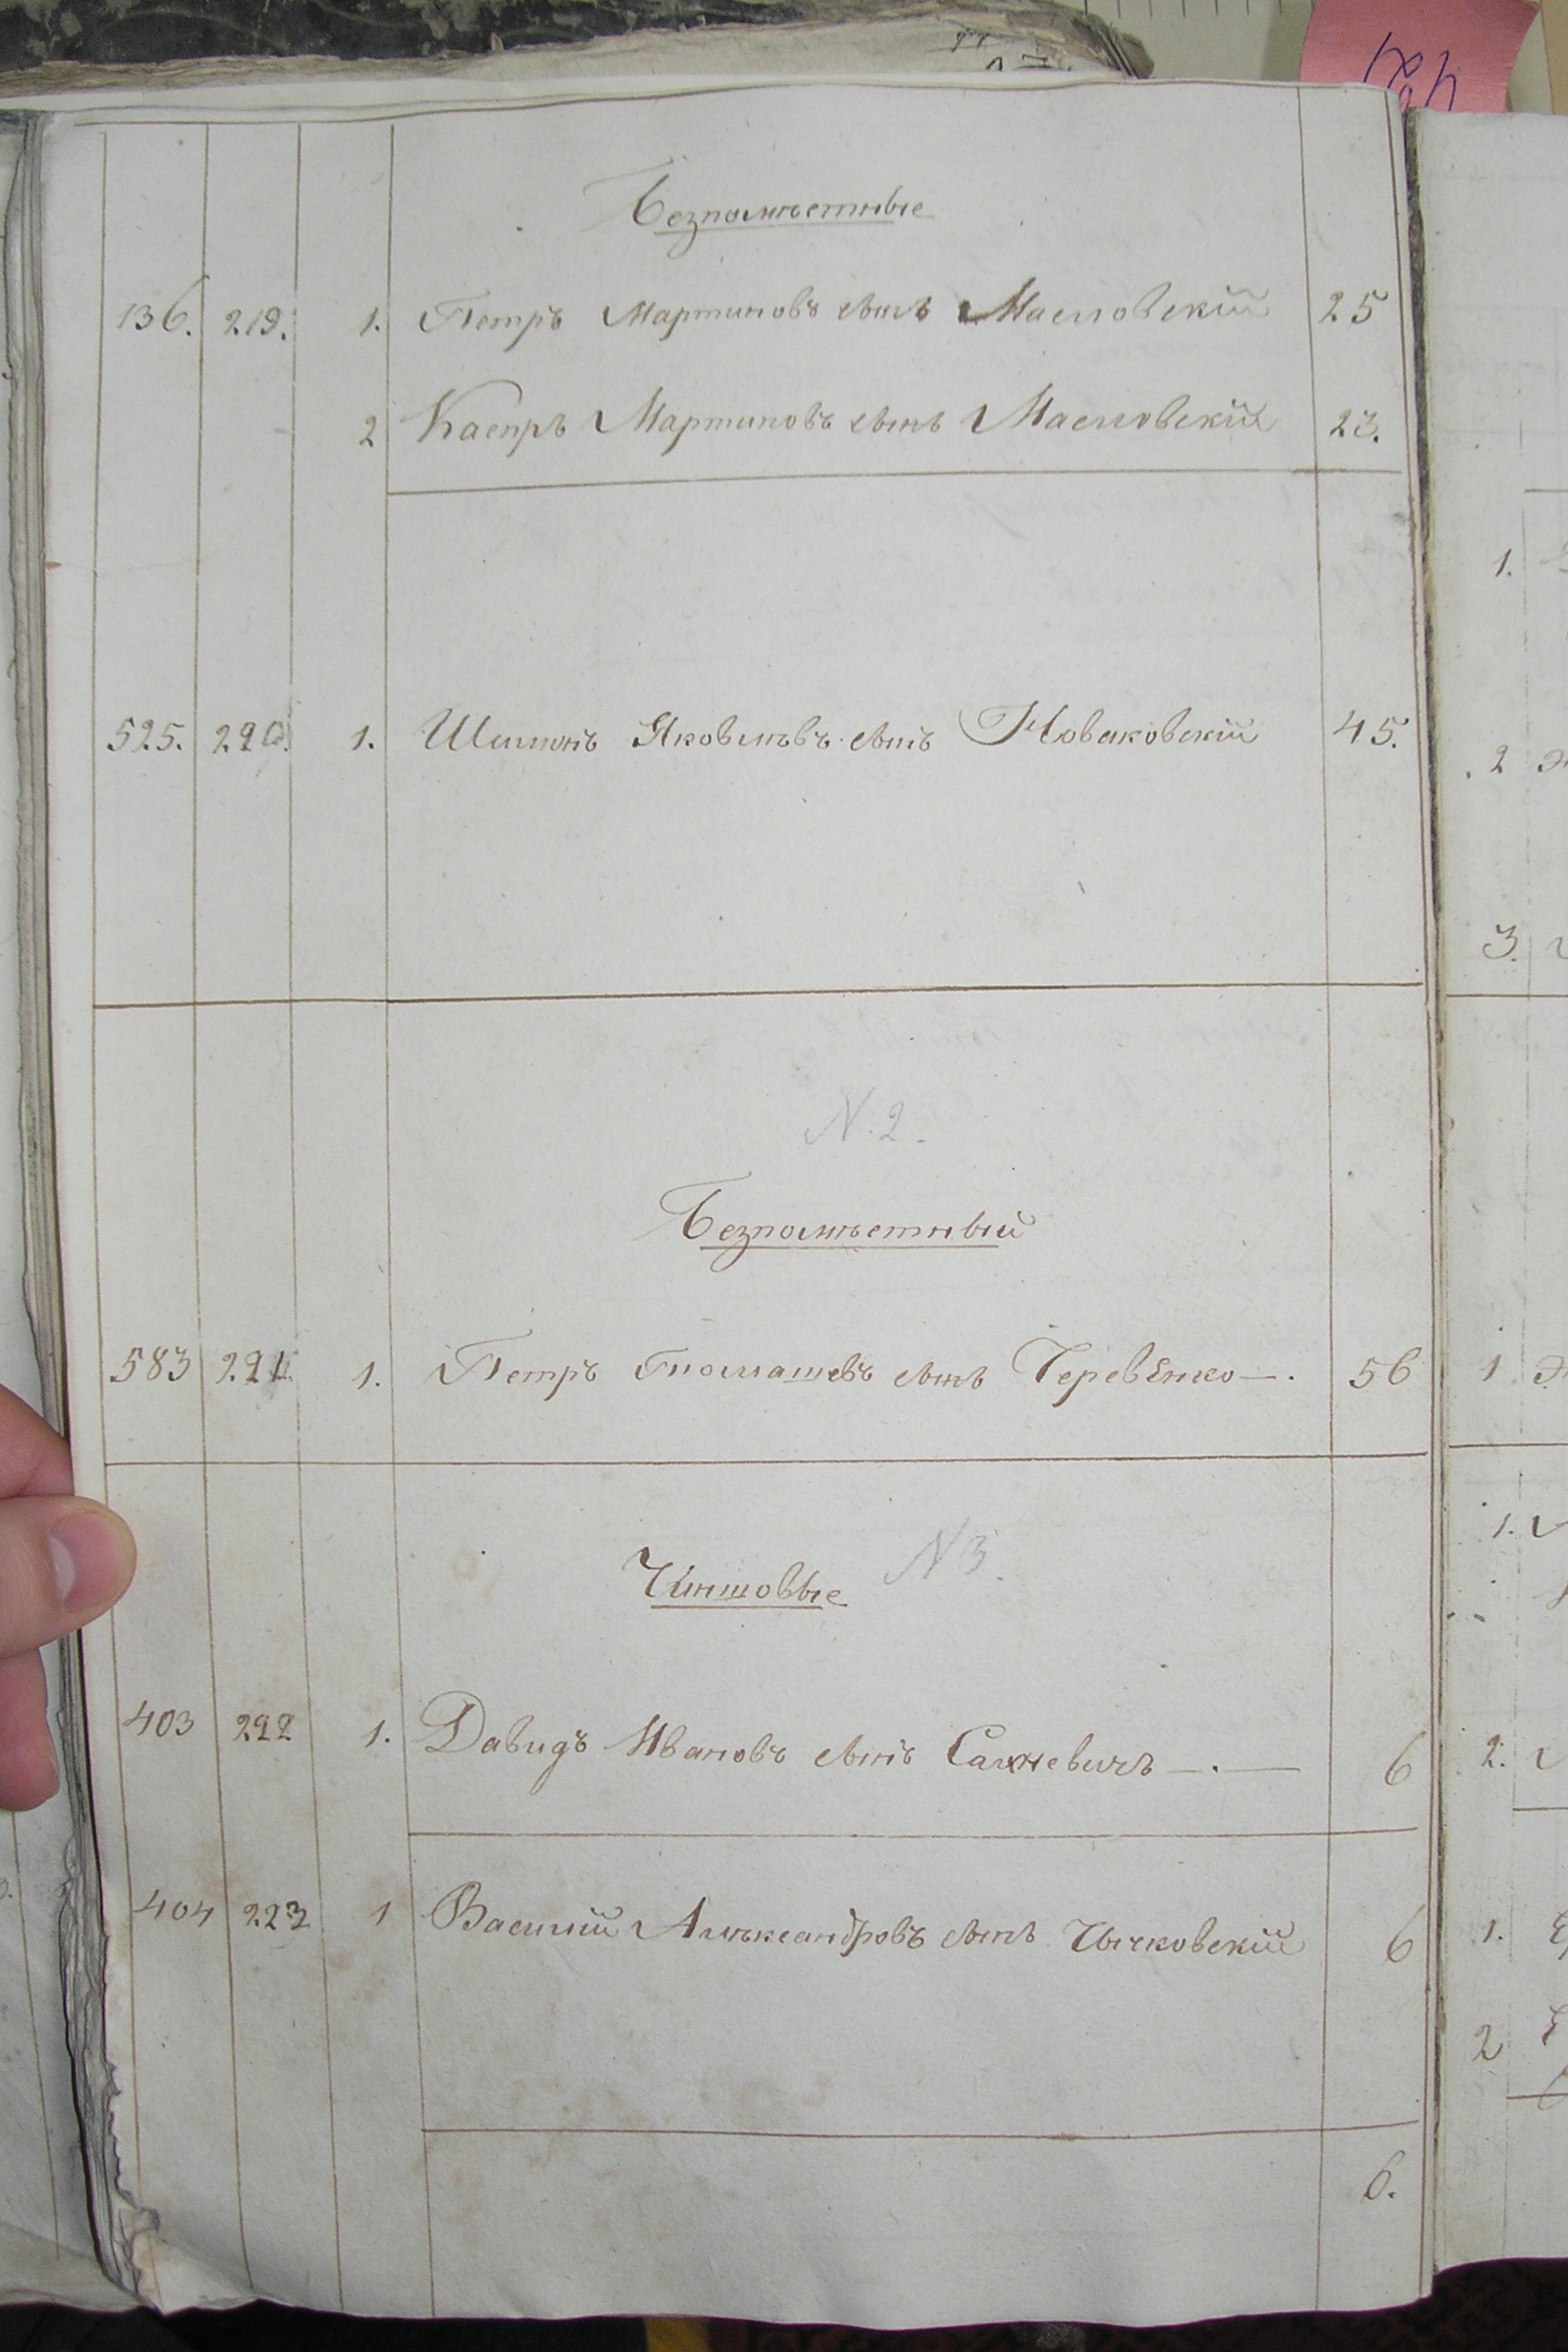 Безпоместные
136. 219. 1. Петръ Мартиновъ сынъ Масловскій 25
2 Каспръ Мартиновъ сынъ Масловскій 23.
525. 220. 1. Шимонъ Яковлѣвъ сынъ Новаковскій 45.
N. 2.
Безпоместный
583 221. 1. Петръ Томашевъ сынъ Черевѣнко —. 56
Чиншовые N 3.
403 222 1. Давидъ Ивановъ сынъ Сахневичъ —.— 6
404 223 1 Василий Алѣксандровъ сынъ Чычковскій 6
6.
1.
2
3.
1
1.
2.
1.
2